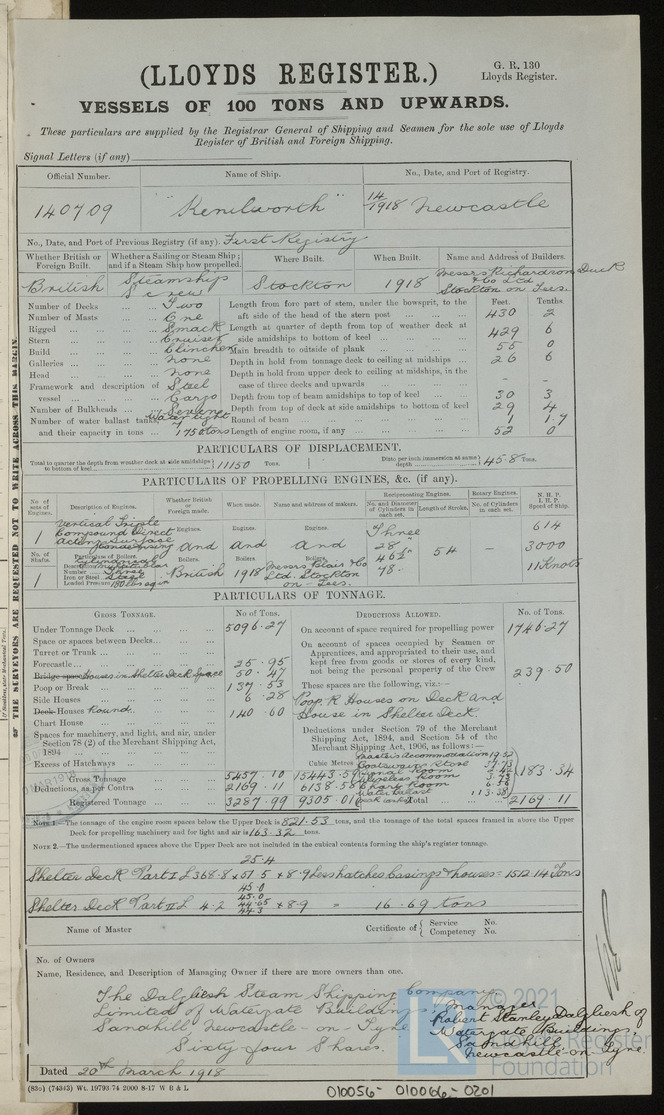 (LLOYDS REGISTER.)
G. R. 130
Lloyds Register.
VESSELS OF 100 TONS AND UPWARDS.
These particulars are supplied by the Registrar General of Shipping and Seamen for the sole use of Lloyds
Register of British and Foreign Shipping.
Signal Letters (if any)
Official Number. Name of Ship. No., Date, and Port of Registry.
140709 "Kenilworth" 14/1918 Newcastle
No., Date, and Port of Previous Registry (if any). First Registry
Whether British or Foreign Built. Whether a Sailing or Steam Ship; and if a Steam Ship how propelled. Where Built. When Built. Name and Address of Builders.
British Steamship Screw Stockton 1918 Messrs Richardson Duck & Co Ltd Stockton on Tees.
Number of Decks Two
Number of Masts One
Rigged Smack
Stern Cruiser
Build Clincher
Galleries None
Head None
Framework and description of vessel Steel Cargo
Number of Bulkheads Seven Water tight
Number of water ballast tanks, and their capacity in tons 7 1750 tons
Feet. Tenths
Length from fore part of stem, under the bowsprit, to the aft side of the head of the stern post 430 2
Length at quarter of depth from top of weather deck at side amidships to bottom of keel 429 6
Main breadth to outside of plank 55 0
Depth in hold from tonnage deck to ceiling at midships 26 6
Depth in hold from upper deck to ceiling at midships, in the case of three decks and upwards - -
Depth from top of beam amidships to top of keel 30 3
Depth from top of deck at side amidships to bottom of keel 29 4
Round of beam 1 1.7
Length of engine room, if any 52 0
PARTICULARS OF DISPLACEMENT.
Total to quarter the depth from weather deck at side amidships to bottom of keel 11150 Tons. Ditto per inch immersion at same depth 45.8 Tons.
PARTICULARS OF PROPELLING ENGINES, &c. (if any).
No. of sets of Engines. Description of Engines. Whether British or Foreign made. When made. Name and address of makers. Reciprocating Engines. Rotary Engines. N. H. P. I. H. P. Speed of Ship.
No. and Diameter of Cylinders in each set. Length of Stroke. No. of Cylinders in each set.
1 Vertical Triple Compound Direct Acting Surface Condensing Engines. Engines. Engines. Three 614
and and and 28 46½ 78. 54 - 3000
No. of Shafts. Particulars of Boilers. Boilers. Boilers. Boilers.
1 Description Cylindrical Multitubular Number Three Iron or Steel Steel Loaded Pressure 180 lbs sq in British 1918 Messrs Blair & Co Ltd. Stockton on-Tees. 11 Knots
PARTICULARS OF TONNAGE.
GROSS TONNAGE. No. of Tons. DEDUCTIONS ALLOWED. No. of Tons.
Under Tonnage Deck 5096.27
Space or spaces between Decks
Turret or Trunk
Forecastle 25.95
Bridge space Houses in Shelter Deck Space 50.47
Poop or Break 137.53
Side Houses 6.28
Deck Houses Round. 140.60
Chart House
Spaces for machinery, and light, and air, under Section 78 (2) of the Merchant Shipping Act, 1894
Excess of Hatchways Cubic Metres
Gross Tonnage 5457.10 15443.59
Deductions, as per Contra 2169.11 6138.58
Registered Tonnage 3287.99 9305.01
On account of space required for propelling power 1746.27
On account of spaces occupied by Seamen or Apprentices, and appropriated to their use, and kept free from goods or stores of every kind, not being the personal property of the Crew 239.50
These spaces are the following, viz:—
Poop. R Houses on Deck and
House in Shelter Deck.
Deductions under Section 79 of the Merchant Shipping Act, 1894, and Section 54 of the Merchant Shipping Act, 1906, as follows:—
Masters Accommodation
Boatswains Store
Signal Room
Wireless Room
Chart Room
Water Ballast peak tanks 113.38 183.34
Total 2169.11
NOTE 1.—The tonnage of the engine room spaces below the Upper Deck is 821.53 tons, and the tonnage of the total spaces framed in above the Upper
Deck for propelling machinery and for light and air is 163.32 tons.
NOTE 2.—The undermentioned spaces above the Upper Deck are not included in the cubical contents forming the ship's register tonnage.
25.4
Shelter deck Part I L 368.8 x 51.5 x 8.9 Less hatches casings & houses = 1512.14 Tons
45.0
Shelter Deck Part II L 4.2 45.0 44.05 44.3 x 8.9 = 16.69 tons
Name of Master Certificate of { Service No. Competency No.
No. of Owners
Name, Residence, and Description of Managing Owner if there are more owners than one.
The Dalgliesh Steam Shipping Company
Limited of Watergate Buildings
Sandhill, Newcastle-on-Tyne
Sixty four Shares.
Manager
Robert Stanley Dalgliesh of
Watergate Buildings,
Sandhill
Newcastle-on-Tyne.
Dated 20th March 1918
(839) (74343) Wt. 19793-74 2000 8-17 W B & L
010056-010066-0201
© 2021
Lloyd's Register
Foundation
OF THE SURVEYORS ARE REQUESTED NOT TO WRITE ACROSS THIS MARGIN.